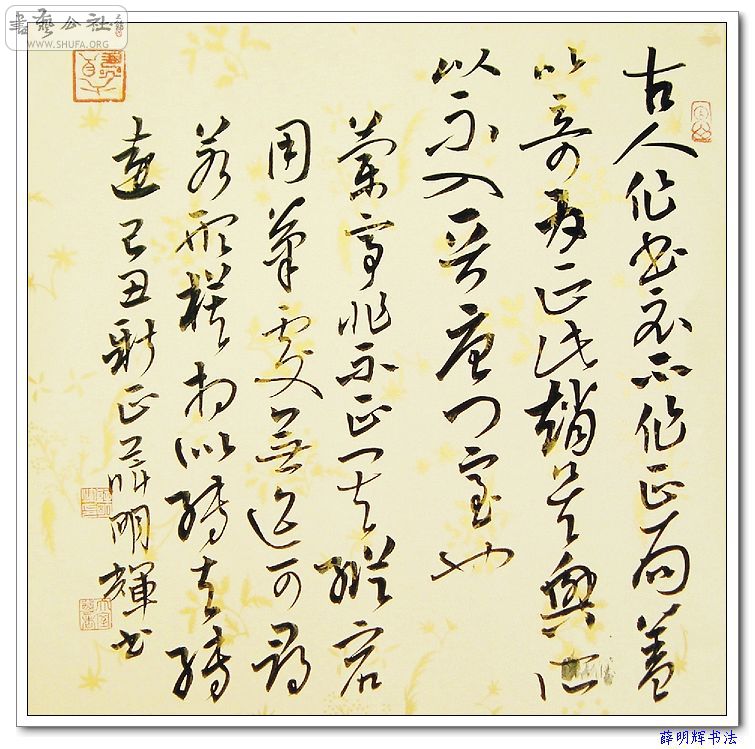 書藝公社
WWW.SHUFA.ORG
古人作書必不作正局蓋
以奇為正此趙吳興所
以不入晉唐門室也
蘭亭非不正其縱宕
用筆處無迹可尋
若形模相似轉去轉
遠己丑新正薛明輝書
薛明辉书法